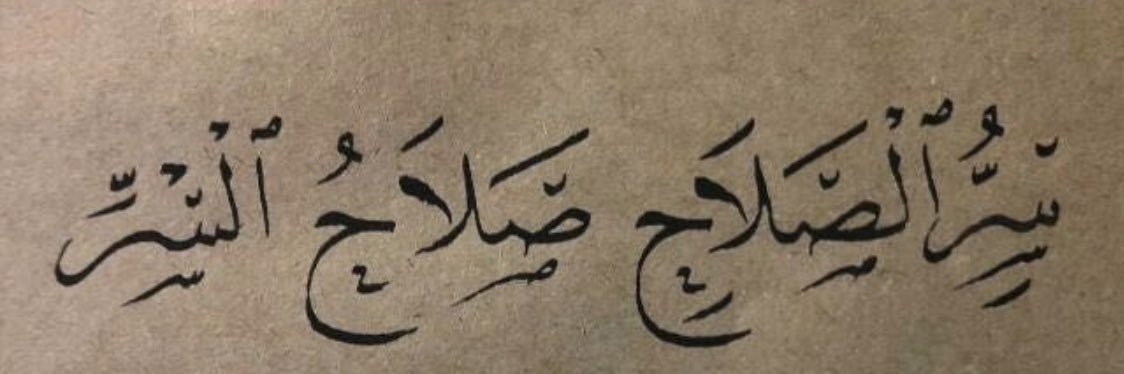 سِرُّ ٱلْصَّلَاحِ صَلَاحُ ٱلْسِّرِّ